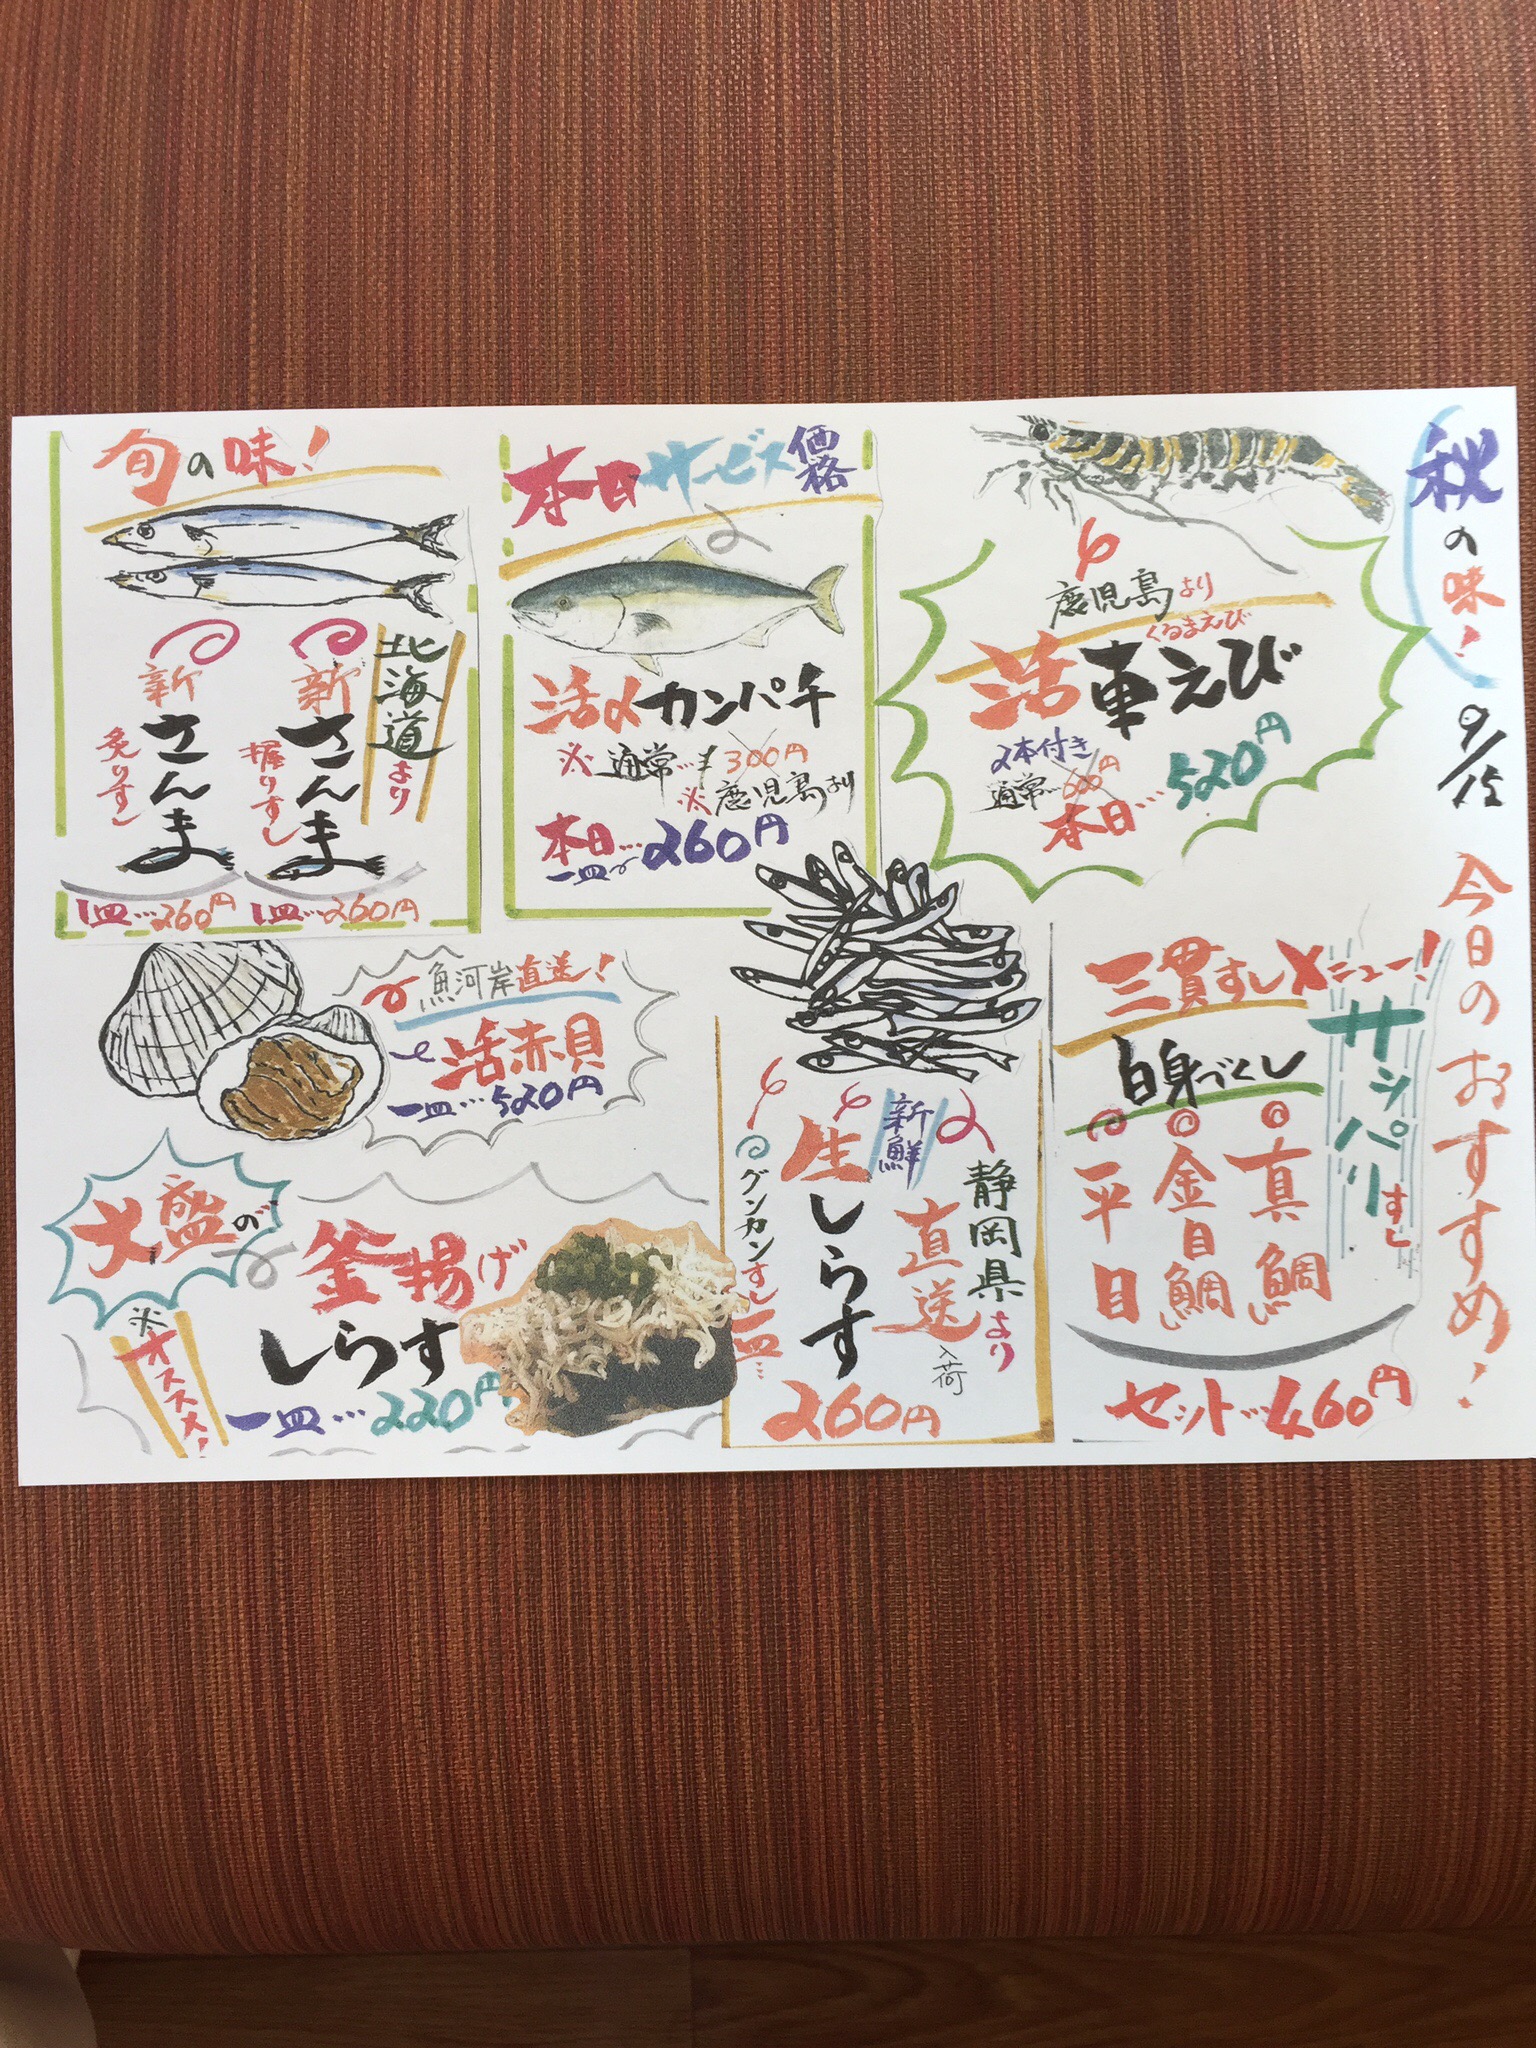 秋の味! 9/15
今日のおすすめ!
鹿児島より
くるまえび
活車えび
2本付き
通常…600円
本日…520円
本日サービス価格
活〆カンパチ
※通常…300円
※鹿児島より
本日…
一皿 260円
旬の味!
北海道より
新さんま
握りすし
1皿…260円
新さんま
炙りすし
1皿…260円
三貫すしメニュー!
サッパリすし
白身づくし
真鯛
金目鯛
平目
セット…460円
静岡県より
新鮮
直送入荷
生しらす
グンカンすし
一皿…
260円
魚河岸直送!
活赤貝
一皿…520円
大盛の
釜揚げ
しらす
※オススメ!
一皿…220円